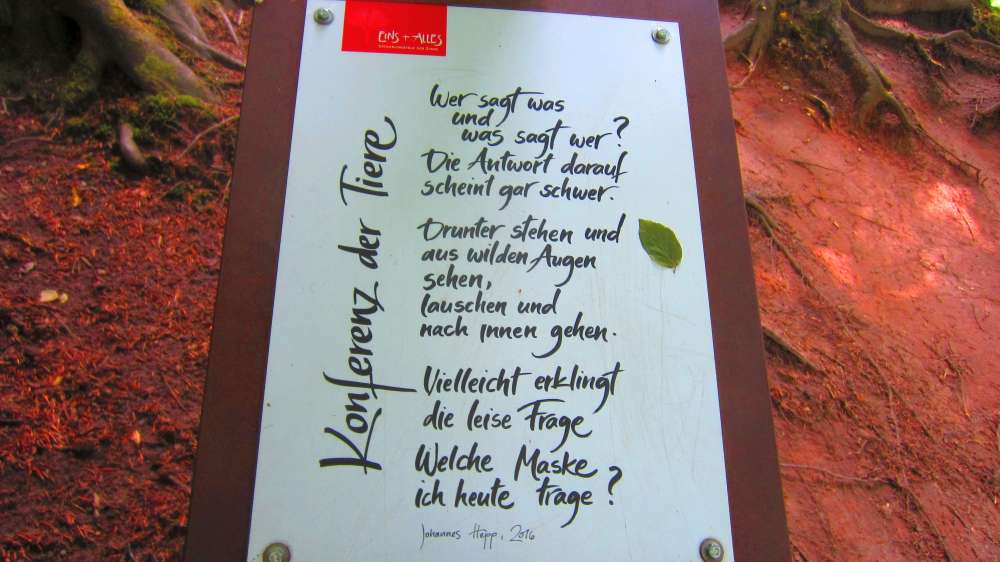 EINS + ALLES
ERFAHRUNGSFELD DER SINNE
Konferenz der Tiere
Wer sagt was
und
was sagt wer?
Die Antwort darauf
scheint gar schwer.
Drunter stehen und
aus wilden Augen
sehen,
lauschen und
nach Innen gehen.
Vielleicht erklingt
die leise Frage
Welche Maske
ich heute trage?
Johannes Hepp, 2016